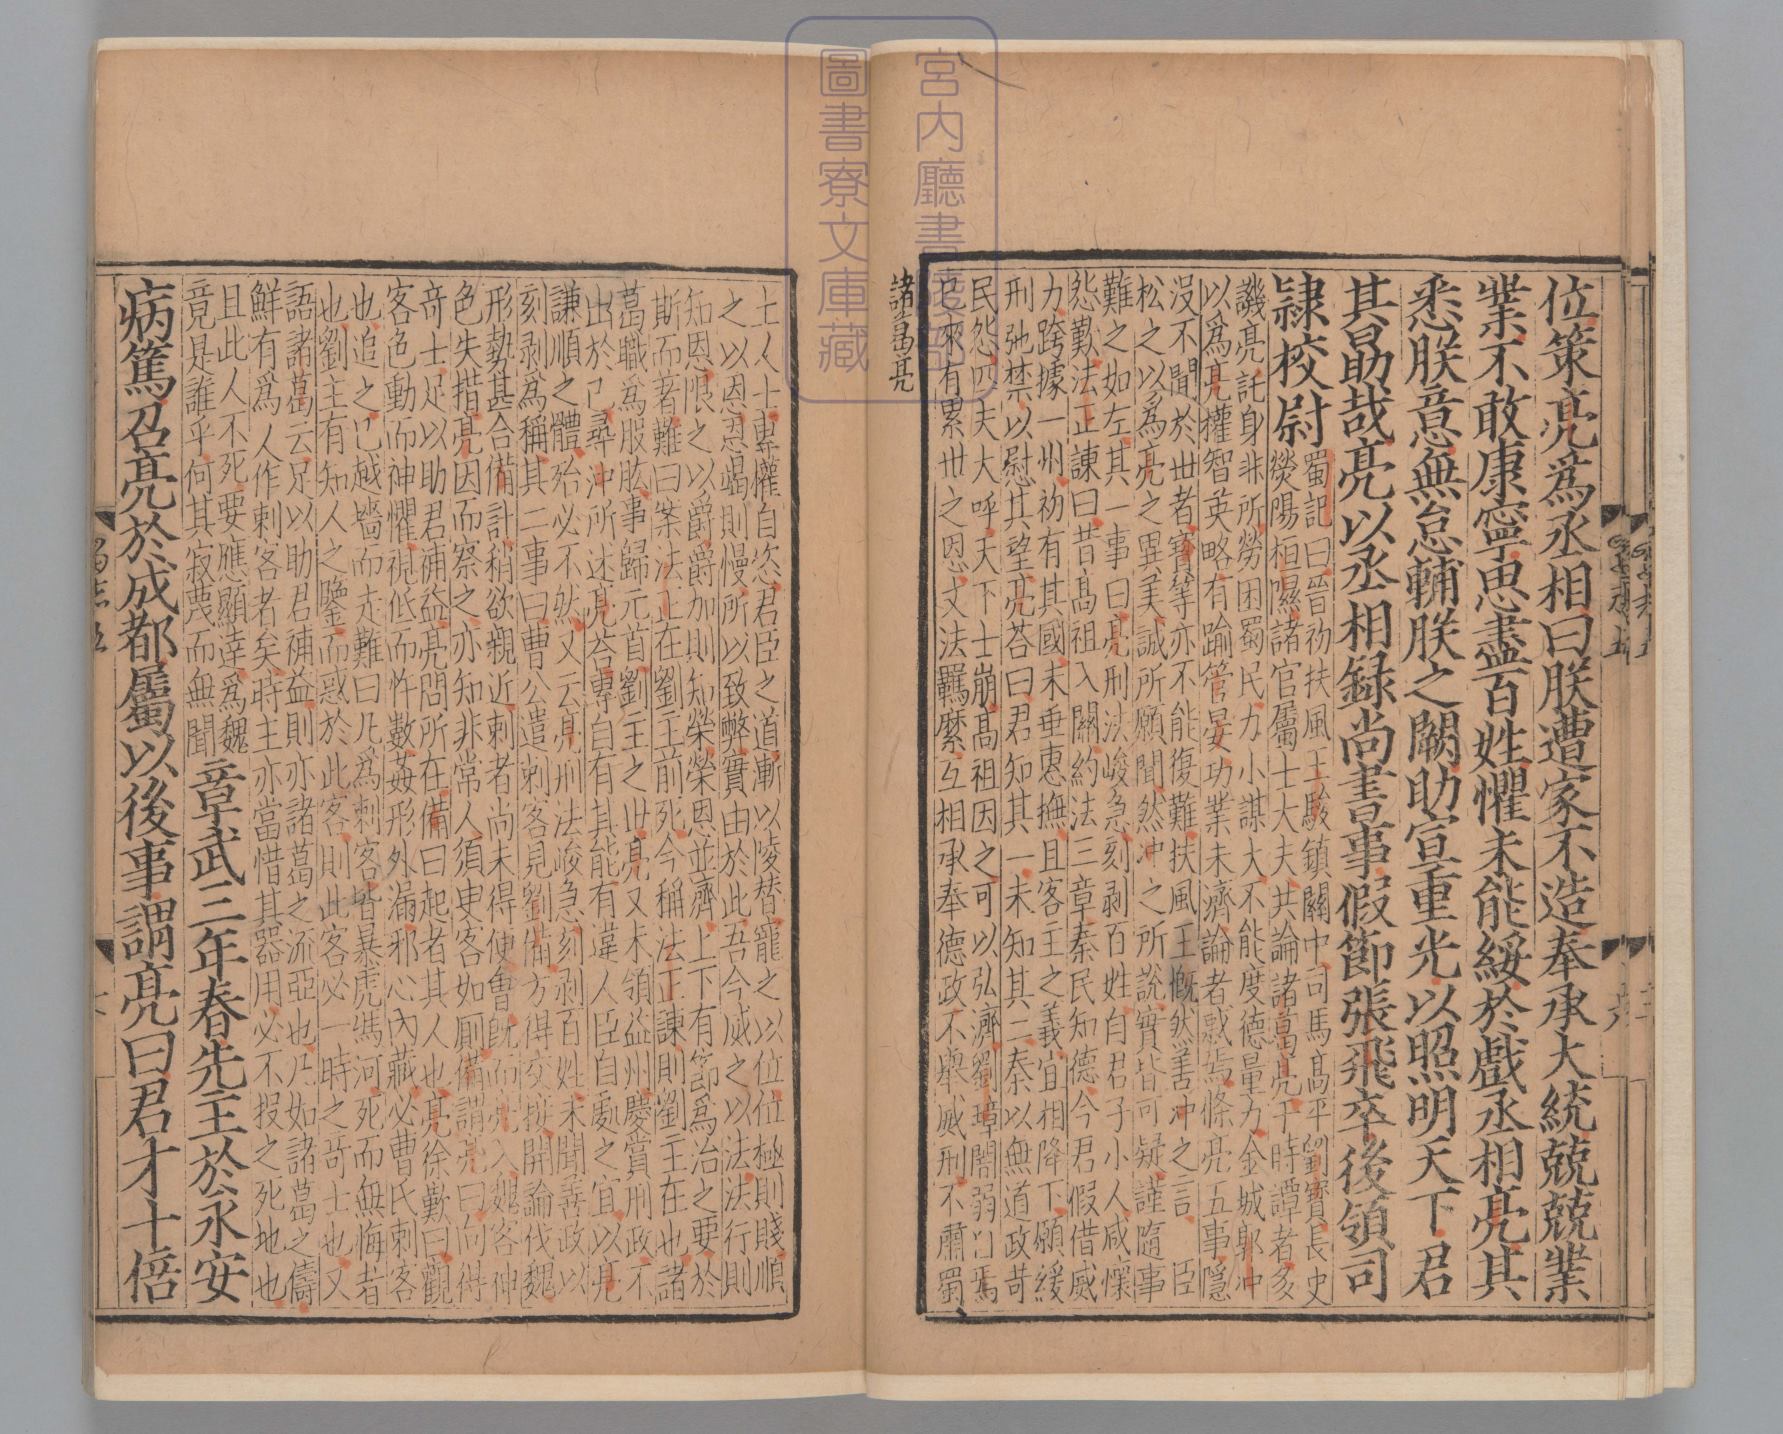 宮内廳書陵部
圖書寮文庫藏
位策亮爲丞相曰朕遭家不造奉承大統兢兢業
業不敢康寧思盡百姓懼未能綏於戲丞相亮其
悉朕意無怠輔朕之闕助宣重光以照明天下君
其勗哉亮以丞相録尚書事假節張飛卒後領司
隸校尉
蜀記曰晉初扶風王駿鎮關中司馬高平劉寶長史
滎陽桓隰諸官屬士大夫共論諸葛亮于時譚者多
譏亮託身非所勞困蜀民力小謀大不能度德量力金城郭冲
以爲亮權智英略有踰管晏功業未濟論者惑焉條亮五事隱
没不聞於世者寶等亦不能復難扶風王慨然善冲之言 臣
松之以爲亮之異美誠所願聞然冲之所說實皆可疑謹隨事
難之如左其一事曰亮刑法峻急刻剥百姓自君子小人咸懷
怨歎法正諫曰昔高祖入關約法三章秦民知德今君假借威
力跨據一州初有其國未垂惠撫且客主之義宜相降下願緩
刑弛禁以慰其望亮荅曰君知其一未知其二秦以無道政苛
民怨匹夫大呼天下土崩高祖因之可以弘濟劉璋闇弱自焉
已來有累世之恩文法羈縻互相承奉德政不舉威刑不肅蜀
諸葛亮
土人士專權自恣君臣之道漸以陵替寵之以位位極則賤順
之以恩恩竭則慢所以致弊實由於此吾今威之以法法行則
知恩限之以爵爵加則知榮榮恩並濟上下有節爲治之要於
斯而著難曰案法正在劉主前死今稱法正諫則劉主在也諸
葛職爲股肱事歸元首劉主之世亮又未領益州慶賞刑政不
出於己尋冲所述亮荅專自有其能有違人臣自處之宜以亮
謙順之體殆必不然又云亮刑法峻急刻剥百姓未聞善政以
刻剥爲稱其二事曰曹公遣刺客見劉備方得交接開論伐魏
形勢甚合備計稍欲親近刺者尚未得便會既而亮入魏客神
色失措亮因而察之亦知非常人須臾客如厠備謂亮曰向得
奇士足以助君補益亮問所在備曰起者其人也亮徐歎曰觀
客色動而神懼視低而忤數姦形外漏邪心內藏必曹氏刺客
也追之已越墻而走難曰凡爲刺客皆暴虎馮河死而無悔者
也劉主有知人之鑒而惑於此客則此客必一時之奇士也又
語諸葛云足以助君補益則亦諸葛之流亞也凡如諸葛之儔
鮮有爲人作刺客者矣時主亦當惜其器用必不投之死地也
且此人不死要應顯達爲魏
竟是誰乎何其寂蔑而無聞
章武三年春先主於永安
病篤召亮於成都屬以後事謂亮曰君才十倍